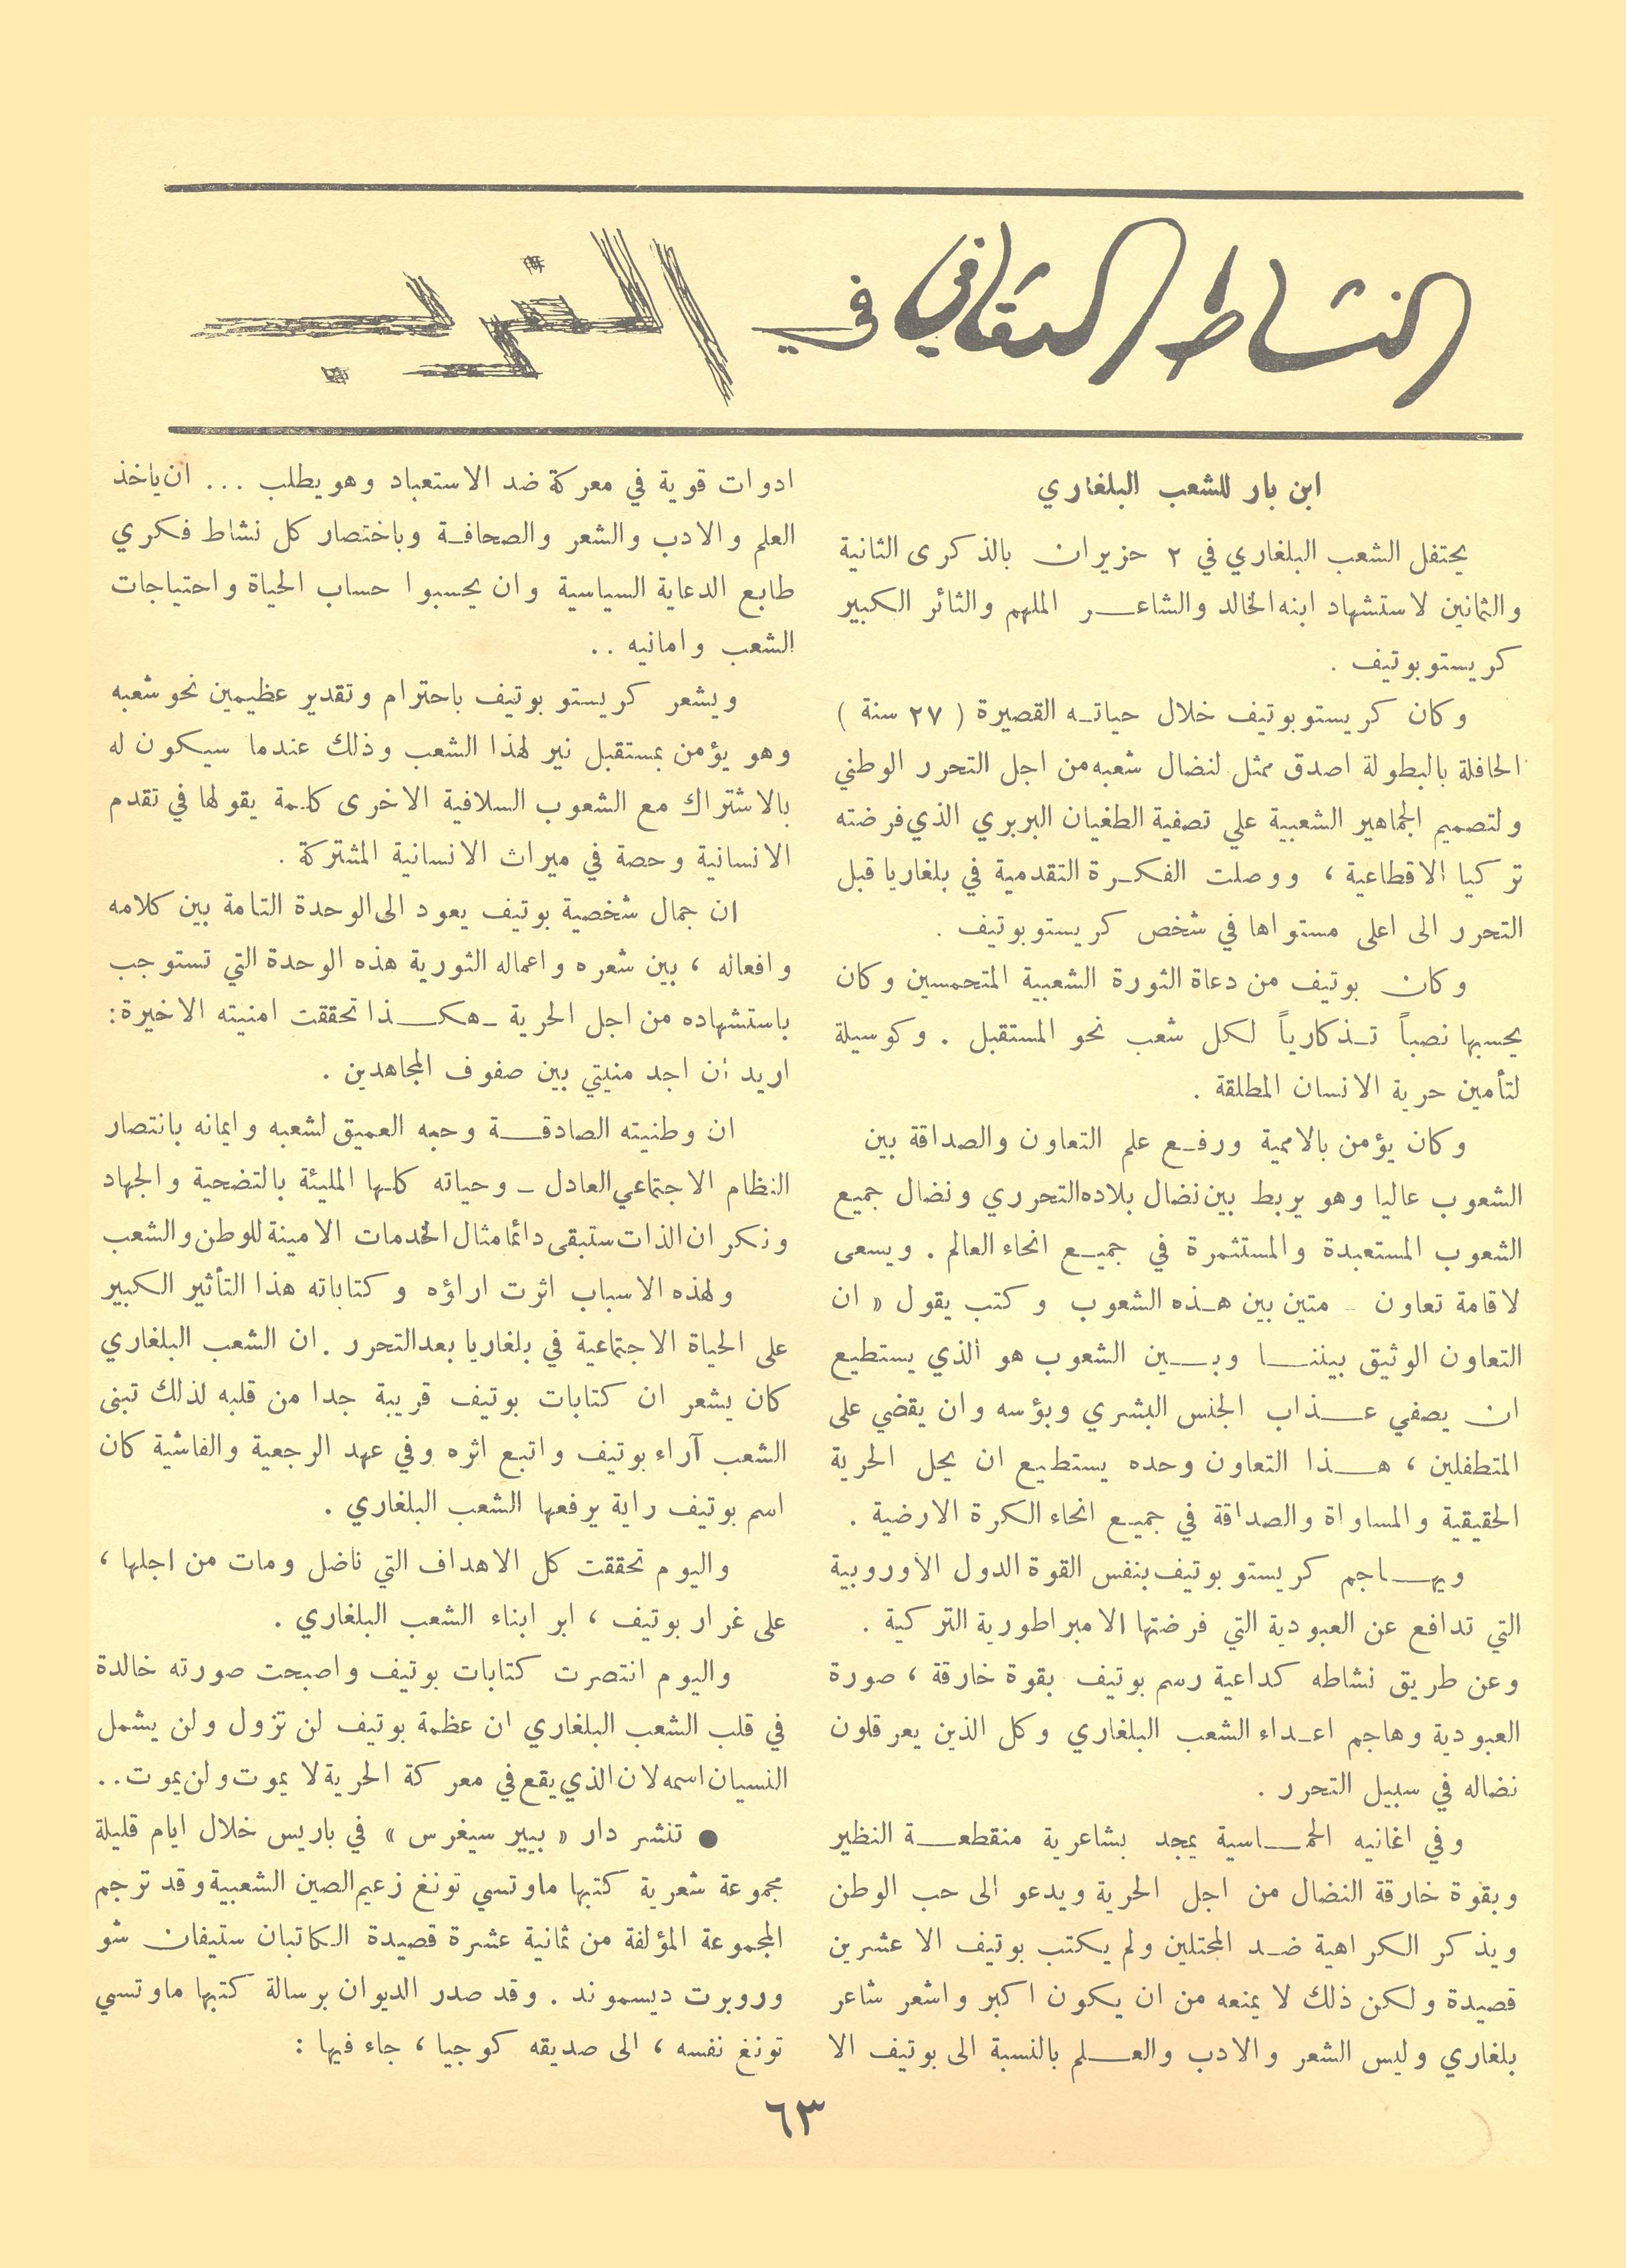 النشاط الثقافي في الغرب
ابن بار للشعب البلغاري
يحتفل الشعب البلغاري في ٢ حزيران بالذكرى الثانية
والثمانين لاستشهاد ابنه الخالد والشاعر الملهم والثائر الكبير
كريستو بوتيف .
وكان كريستو بوتيف خلال حياته القصيرة ( ٢٧ سنة )
الحافلة بالبطولة اصدق ممثل لنضال شعبه من اجل التحرر الوطني
ولتصميم الجماهير الشعبية على تصفية الطغيان البربري الذي فرضته
تركيا الاقطاعية ، ووصلت الفكرة التقدمية في بلغاريا قبل
التحرر الى اعلى مستواها في شخص كريستو بوتيف .
وكان بوتيف من دعاة الثورة الشعبية المتحمسين وكان
يحسبها نصباً تذكارياً لكل شعب نحو المستقبل . وكوسيلة
لتأمين حرية الانسان المطلقة .
وكان يؤمن بالاممية ورفع علم التعاون والصداقة بين
الشعوب عاليا وهو يربط بين نضال بلاده التحرري ونضال جميع
الشعوب المستعبدة والمستثمرة في جميع انحاء العالم . ويسعى
لاقامة تعاون متين بين هذه الشعوب وكتب يقول « ان
التعاون الوثيق بيننا وبين الشعوب هو الذي يستطيع
ان يصفي عذاب الجنس البشري وبؤسه وان يقضي على
المتطفلين ، هذا التعاون وحده يستطيع ان يحل الحرية
الحقيقية والمساواة والصداقة في جميع انحاء الكرة الارضية .
ويهاجم كريستو بوتيف بنفس القوة الدول الأوروبية
التي تدافع عن العبودية التي فرضتها الامبراطورية التركية .
وعن طريق نشاطه كداعية رسم بوتيف بقوة خارقة ، صورة
العبودية وهاجم اعداء الشعب البلغاري وكل الذين يعرقلون
نضاله في سبيل التحرر .
وفي اغانيه الحماسية يمجد بشاعرية منقطعة النظير
وبقوة خارقة النضال من اجل الحرية ويدعو الى حب الوطن
ويذكر الكراهية ضد المحتلين ولم يكتب بوتيف الا عشرين
قصيدة ولكن ذلك لا يمنعه من ان يكون اكبر واشعر شاعر
بلغاري وليس الشعر والادب والعلم بالنسبة الى بوتيف الا
ادوات قوية في معركة ضد الاستعباد وهو يطلب ... ان يأخذ
العلم والادب والشعر والصحافة وباختصار كل نشاط فكري
طابع الدعاية السياسية وان يحسبوا حساب الحياة واحتياجات
الشعب وامانيه ..
ويشعر كريستو بوتيف باحترام وتقدير عظيمين نحو شعبه
وهو يؤمن بمستقبل نير لهذا الشعب وذلك عندما سيكون له
بالاشتراك مع الشعوب السلافية الاخرى كلمة يقولها في تقدم
الانسانية وحصة في ميراث الانسانية المشتركة .
ان جمال شخصية بوتيف يعود الى الوحدة التامة بين كلامه
وافعاله ، بين شعره واعماله الثورية هذه الوحدة التي تستوجب
باستشهاده من اجل الحرية - هكذا تحققت امنيته الاخيرة :
اريد أن اجد منيتي بين صفوف المجاهدين .
ان وطنيته الصادقة وحبه العميق لشعبه وايمانه بانتصار
النظام الاجتماعي العادل - وحياته كلها المليئة بالتضحية والجهاد
ونكران الذات ستبقى دائما مثال الخدمات الامينة للوطن والشعب
ولهذه الاسباب اثرت اراؤه وكتاباته هذا التأثير الكبير
على الحياة الاجتماعية في بلغاريا بعد التحرر . ان الشعب البلغاري
كان يشعر ان كتابات بوتيف قريبة جدا من قلبه لذلك تبنى
الشعب آراء بوتيف واتبع اثره وفي عهد الرجعية والفاشية كان
اسم بوتيف راية يرفعها الشعب البلغاري .
واليوم تحققت كل الاهداف التي ناضل ومات من اجلها ،
على غرار بوتيف ، ابر ابناء الشعب البلغاري .
واليوم انتصرت كتابات بوتيف واصبحت صورته خالدة
في قلب الشعب البلغاري ان عظمة بوتيف لن تزول ولن يشمل
النسيان اسمه لان الذي يقع في معركة الحرية لا يموت ولن يموت ..
● تنشر دار « بيير سيغرس » في باريس خلال ايام قليلة
مجموعة شعرية كتبها ماوتسي تونغ زعيم الصين الشعبية وقد ترجم
المجموعة المؤلفة من ثمانية عشرة قصيدة الكاتبان ستيفان شو
وروبرت ديسموند . وقد صدر الديوان برسالة كتبها ماوتسي
تونغ نفسه ، الى صديقه كوجيا ، جاء فيها :
٦٣